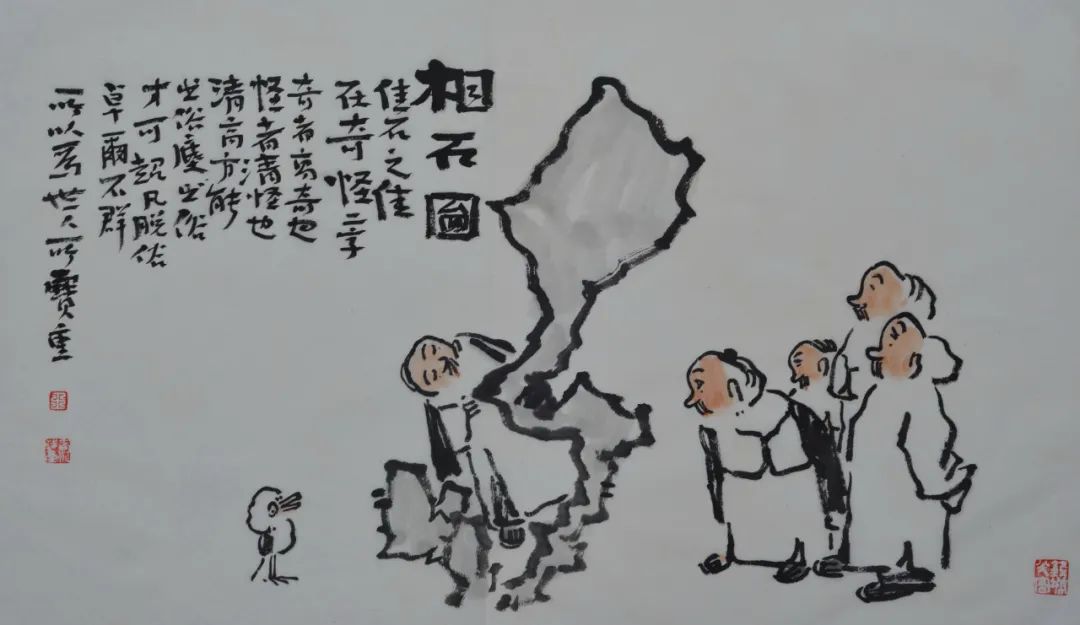 相石圖
佳石之佳
在奇怪二字
奇者离奇也
怪者清怪也
清高方能
出俗塵出俗
才可超凡脱俗
卓爾不群
所以為世人所寶重